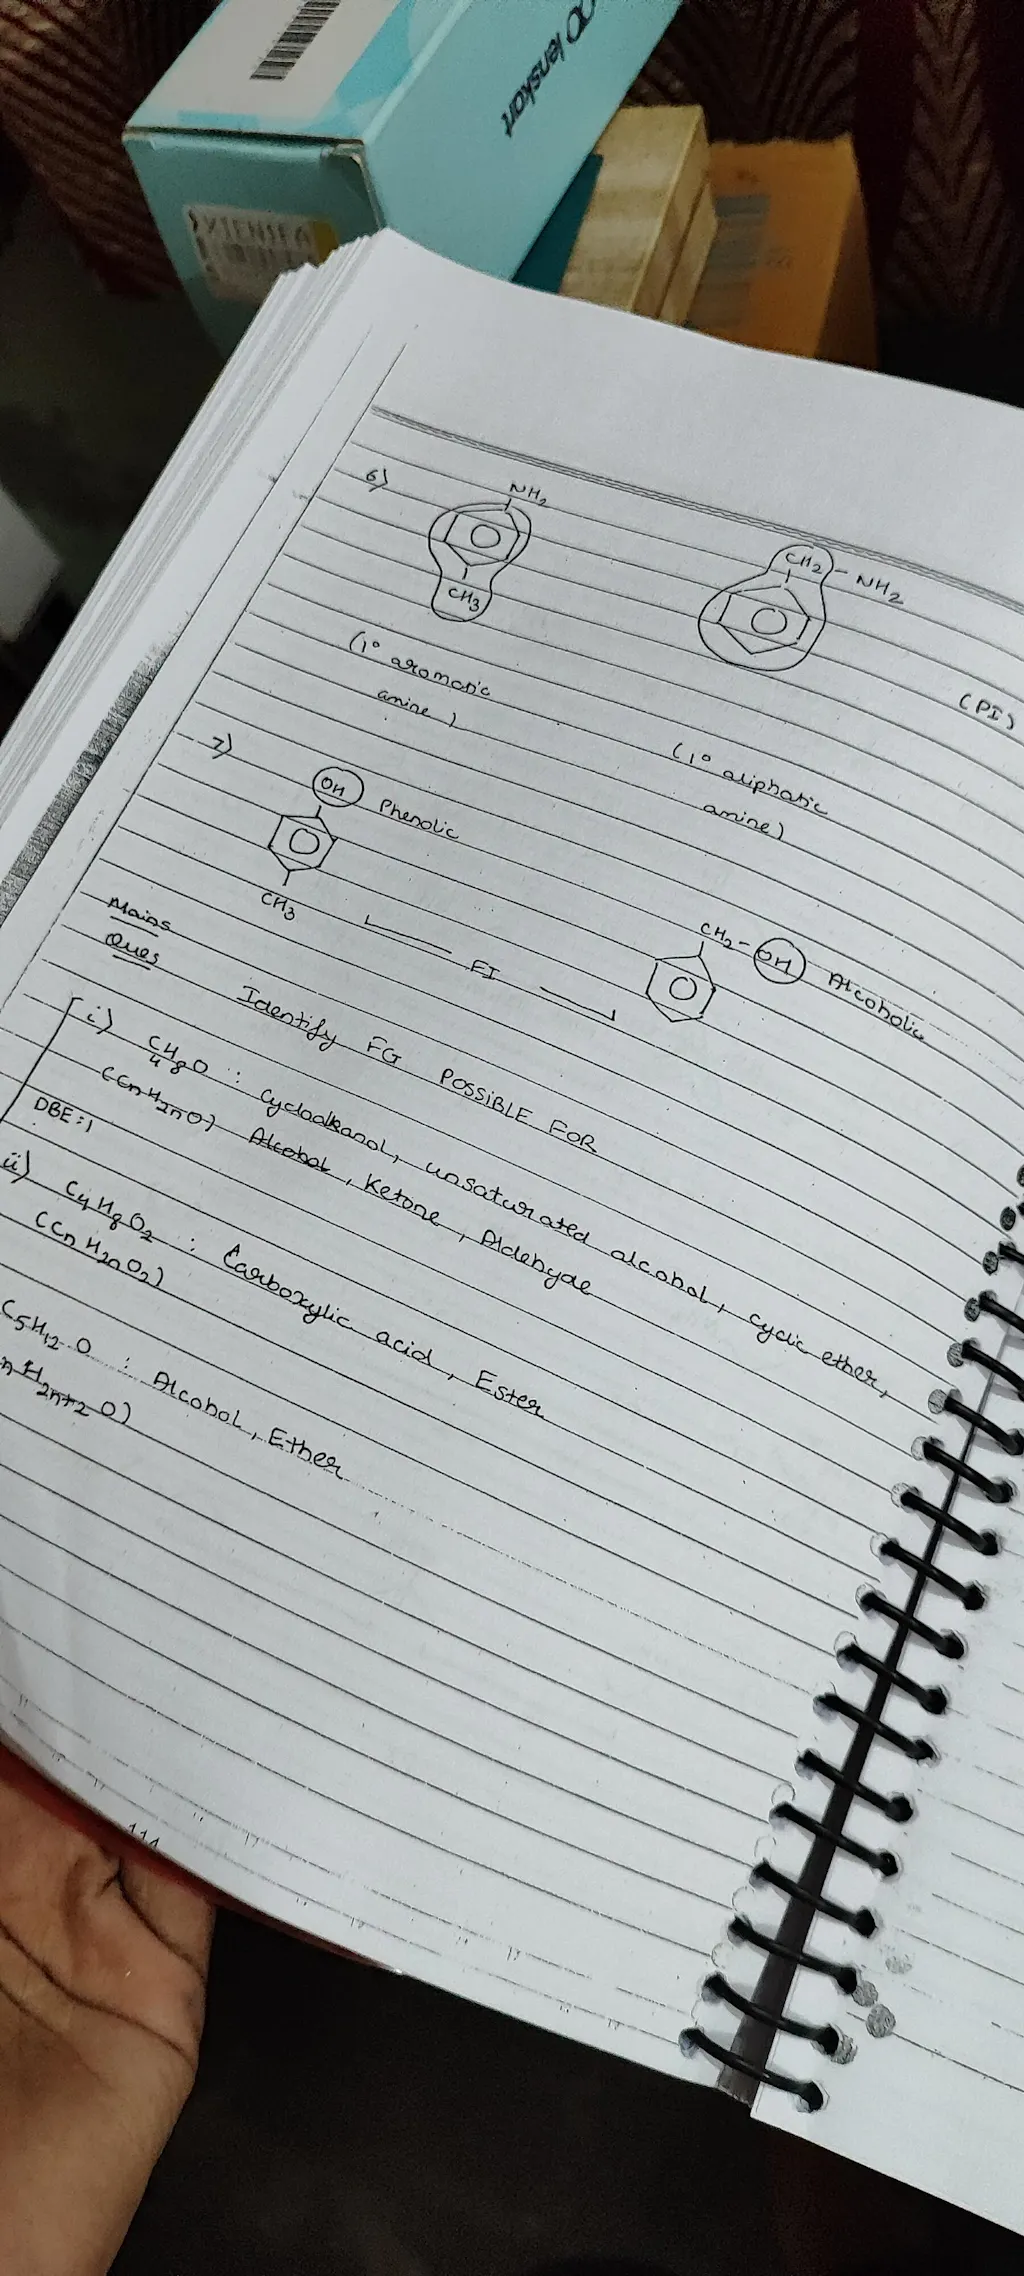 lenskart
6)
NH₂
CH₃
CH₂ - NH₂
(1° aromatic
amine)
(1° aliphatic
amine)
(PI)
7)
OH Phenolic
CH₃
FI
CH₂ - OH Alcoholic
Mains
Ques
Identify FG POSSIBLE FOR
i) C₄H₈O : Cycloalkanol, unsaturated alcohol, cyclic ether,
(CnH₂nO) Alcohol, Ketone, Aldehyde
DBE: 1
ii) C₄H₈O₂ : Carboxylic acid, Ester
(CnH₂nO₂)
C₅H₁₂O : Alcohol, Ether
nH₂n+₂O)